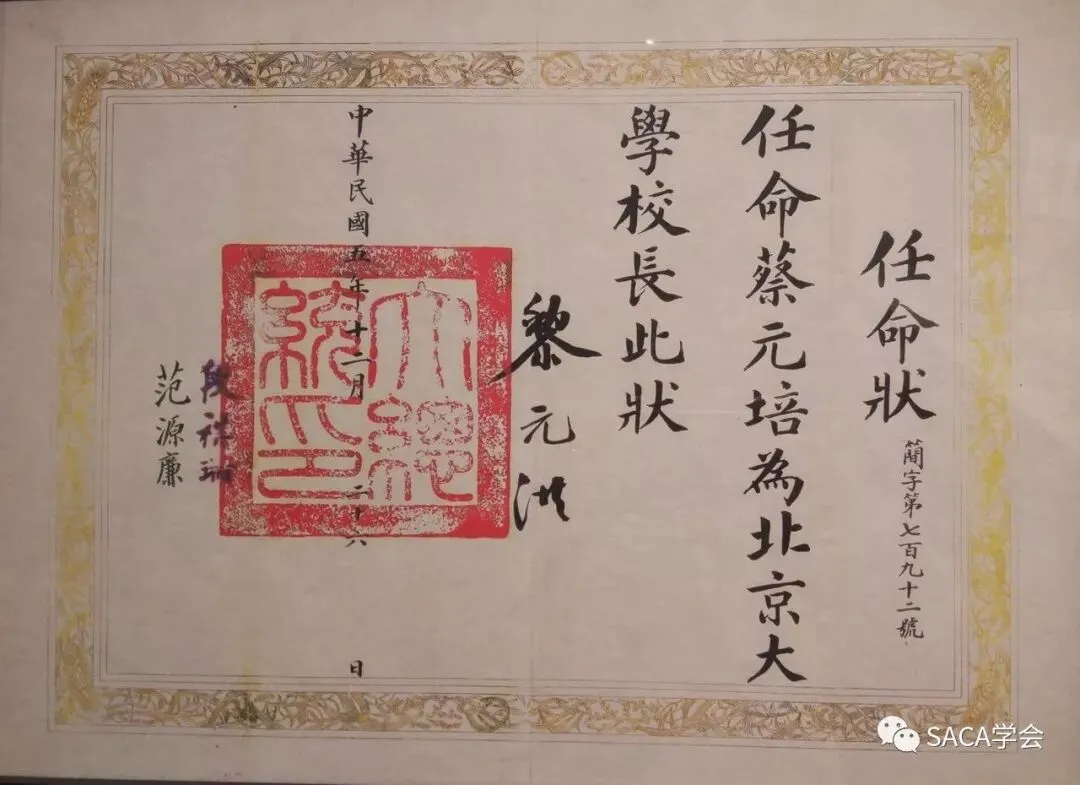 任命狀
簡字第七百九十二號
任命蔡元培為北京大
學校長此狀
黎元洪
大總統印
中華民國五年十二月二十六日
段祺瑞
范源廉
SACA学会